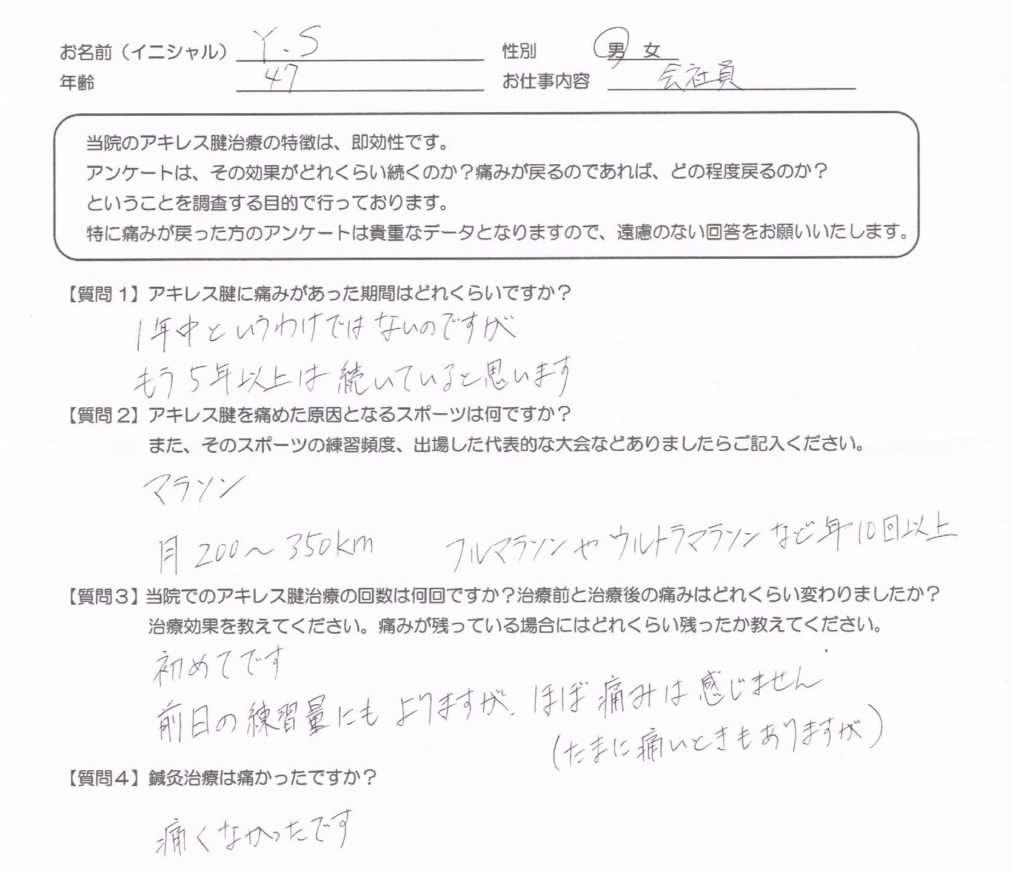 お名前（イニシャル） Y.S 性別 男 女
年齢 47 お仕事内容 会社員
当院のアキレス腱治療の特徴は、即効性です。
アンケートは、その効果がどれくらい続くのか？痛みが戻るのであれば、どの程度戻るのか？
ということを調査する目的で行っております。
特に痛みが戻った方のアンケートは貴重なデータとなりますので、遠慮のない回答をお願いいたします。
【質問１】アキレス腱に痛みがあった期間はどれくらいですか？
1年中というわけではないのですが
もう5年以上は続いていると思います
【質問２】アキレス腱を痛めた原因となるスポーツは何ですか？
また、そのスポーツの練習頻度、出場した代表的な大会などありましたらご記入ください。
マラソン
月200〜350km フルマラソンやウルトラマラソンなど年10回以上
【質問３】当院でのアキレス腱治療の回数は何回ですか？治療前と治療後の痛みはどれくらい変わりましたか？
治療効果を教えてください。痛みが残っている場合にはどれくらい残ったか教えてください。
初めてです
前日の練習量にもよりますが、ほぼ痛みは感じません
（たまに痛いときもありますが）
【質問４】鍼灸治療は痛かったですか？
痛くなかったです